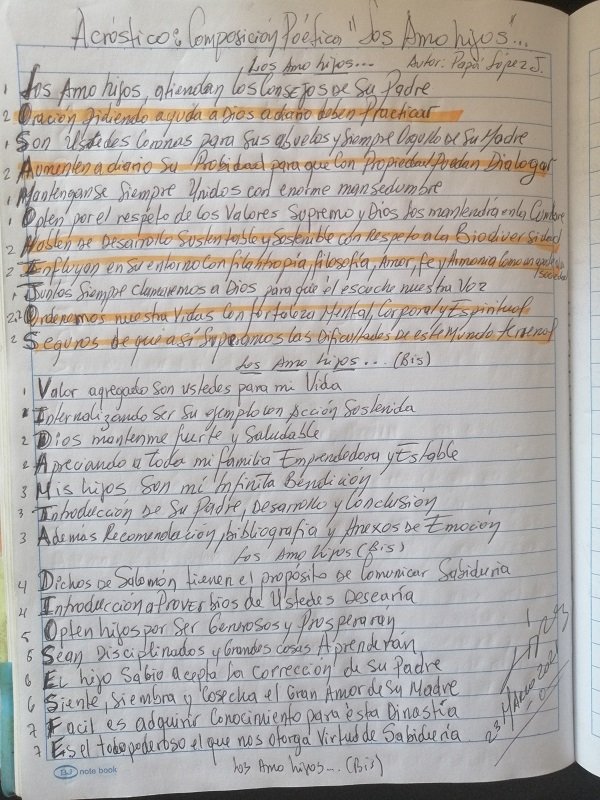 Acróstico: Composición Poética "Los Amo hijos"...
Los Amo hijos...
Autor: Papá López J.
1 Los Amo hijos, atiendan los Consejos de Su Padre
2 Oración Pidiendo ayuda a Dios a diario deben Practicar
1 Son Ustedes Coronas para Sus abuelos y Siempre Orgullo de Su Madre
2 Aumenten a diario Su Probidad para que Con Propiedad Puedan Dialogar
1 Mantenganse Siempre Unidos con enorme mansedumbre
1 Opten por el respeto de los Valores Supremo y Dios los mantendrá en la Cumbre
2 Hablen de Desarrollo Sustentable y Sostenible con Respeto a la Biodiversidad
2 Influyan en Su entorno Con filantropía, filosofía, Amor, fe y Armonía como un
sociedad
1 Juntos Siempre clamaremos a Dios para que él escuche nuestra Voz
2 Ordenemos nuestra Vidas Con fortaleza Mental, Corporal y Espiritual
2 Seguros de que así Superamos las Dificultades de este Mundo terrenal
Los Amo hijos... (Bis)
1 Valor agregado Son ustedes para mi Vida
1 Internalizando Ser Su ejemplo con Acción Sostenida
2 Dios mantenme fuerte y Saludable
2 Apreciando a toda mi familia Emprendedora y Estable
3 Mis hijos Son mi Infinita Bendición
3 Introducción de Su Padre, Desarrollo y Conclusión
3 Ademas Recomendación, bibliografia y Anexos de Emoción
Los Amo hijos (Bis)
4 Dichos de Salomón tienen el propósito de Comunicar Sabiduria
4 Introducción a Proverbios de Ustedes Desearía
5 Opten hijos por Ser Generosos y Prosperarán
5 Sean Disciplinados y Grandes cosas Aprenderán
6 El hijo Sabio acepta la Corrección de Su Padre
6 Siente, Siembra y Cosecha el Gran Amor de Su Madre
7 Facil es adquirir Conocimiento para ésta Dinastía
7 Es el todopoderoso el que nos otorga Virtud de Sabiduria
Los Amo hijos... (Bis)
note book